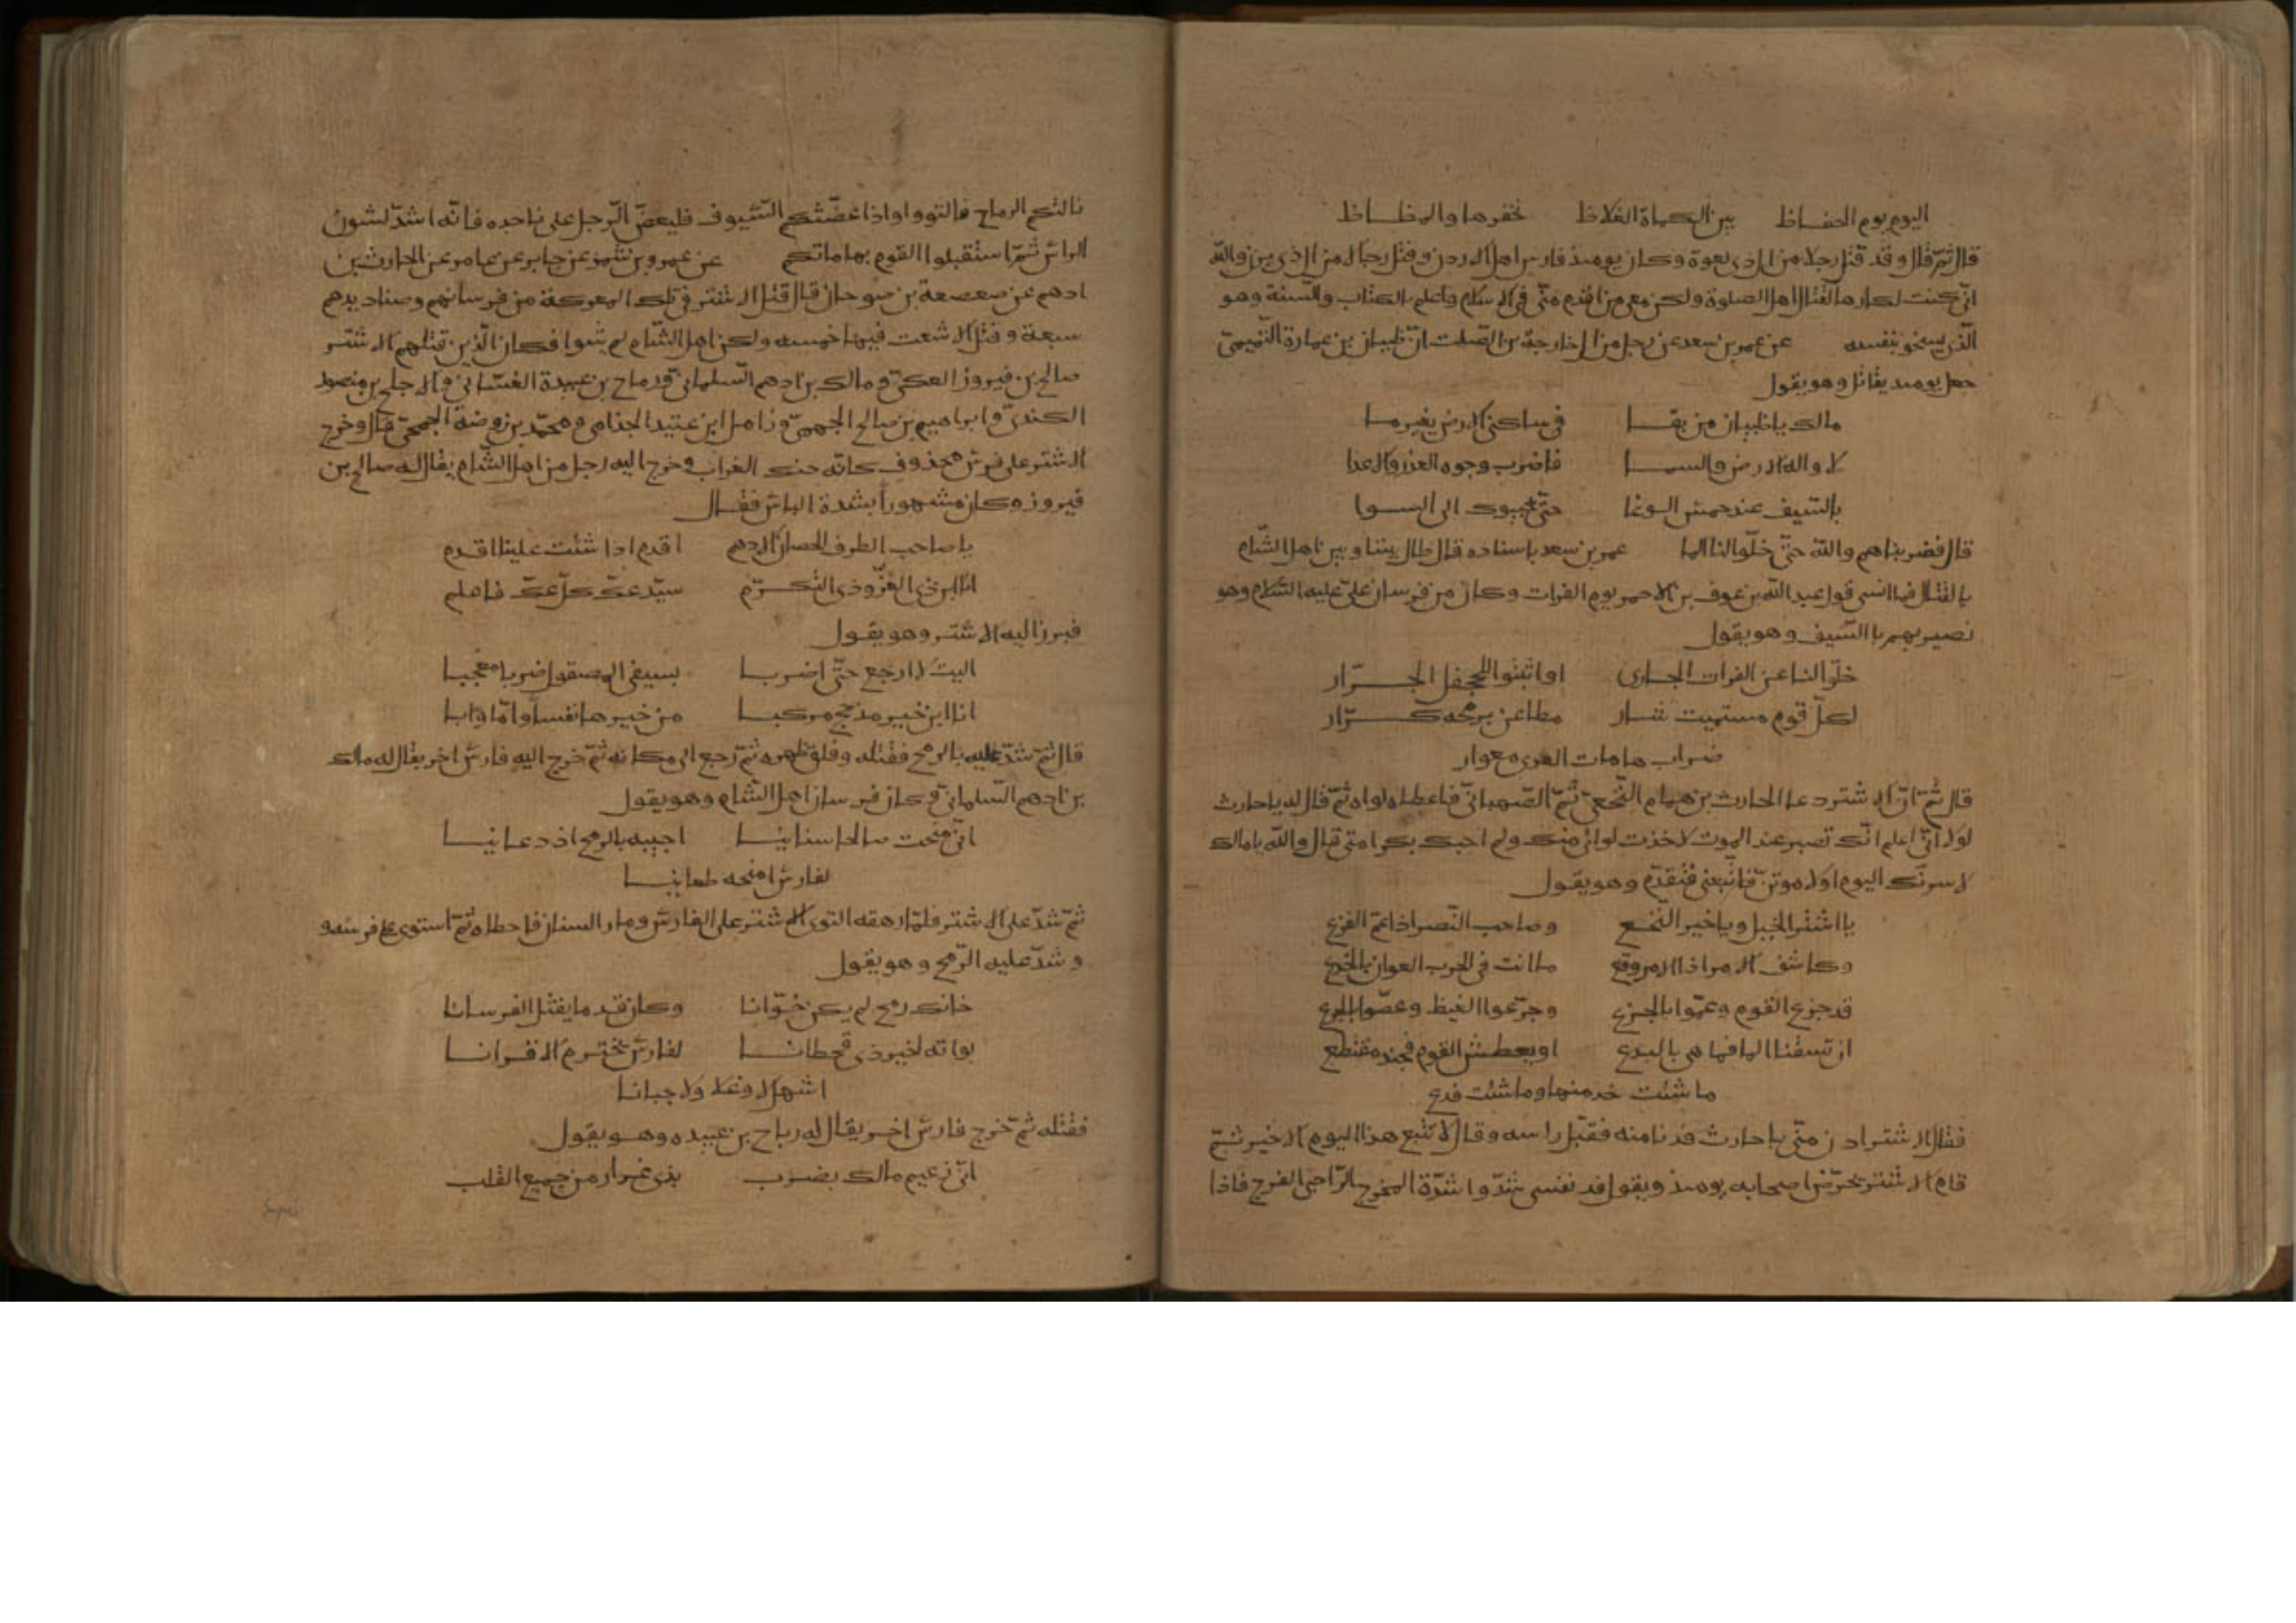 اليوم يوم الحفاظ بين الكماة الغلاظ نحفرها والمظاظ
قال ثم قال وقد قتل رجلا من ال ذى لعوة وكان يومئذ فارس اهل الاردن وقتل رجالا من ال ذى يزن والله
انى كنت لكارها لقتال اهل الصلوة ولكن معى من اقدم منى فى الاسلام واعلم بالكتاب والسنة وهو
الذى يسخو بنفسه عن عمر بن سعد عن رجل من ال خارجة بن الصلت ان ظبيان بن عمارة التميمى
جعل يومئذ يقاتل وهو يقول
مالك يا ظبيان من بقا فى ساكنى الارض بغير ما
لا واله الارض والسما فاضرب وجوه الغدر الاعدا
بالسيف عند حمس الوغا حتى يجيبوك الى السوا
قال فضربناهم والله حتى خلوا لنا الما عمر بن سعد باسناده قال طال بيننا وبين اهل الشام
بالقتال فما انسى قول عبد الله بن عوف بن الاحمر يوم الفرات وكان من فرسان على عليه السلام وهو
نصير بهم باالسيف وهو يقول
خلوا لنا عن الفرات الجارى او اثبتوا للجحفل الجرار
لكل قوم مستميت شار مطاعن برمحه كرار
ضراب هامات العدى معوار
قال ثم ان الاشتر دعا الحارث بن همام النخعى ثم الصهبانى فاعطاه لواه ثم قال له يا حارث
لولا انى اعلم انك تصبر عند الموت لاخذت لوائى منك ولم احبك بكرامتى قال والله يا مالك
لاسرنك اليوم اولا موتن فاتبعنى فتقدم وهو يقول
يا اشتر الخيل ويا خير النخع وصاحب النصر اذا عم الفزع
وكاشف الامر اذا الامر وقع ما انت فى الحرب العوان بالجذع
قد جزع القوم وعموا بالجزع وجرعوا الغيظ وغصوا بالجرع
ان تسقنا الما فما هى بالبدع او يعطش القوم فجند مقتطع
ما شئت خد منها وما شئت فدع
فقال الاشتر ادن منى يا حارث فدنا منه فقبل راسه وقال لا يتبع هذا اليوم الا خير ثم
قام الاشتر يحرض اصحابه يومئذ ويقول فد نفسى شدوا شدة المخرج الراجى الفرج فاذا
نالتكم الرماح فالتووا واذا عضتكم السيوف فليعض الرجل على ناجده فانه اشد لشون
الراس ثم استقبلوا القوم بهاماتكم عن عمرو بن شمر عن جابر عن عامر عن الحارث بن
ادهم عن صعصعة بن صوحان قال قتل الاشتر فى تلك المعركة من فرسانهم وصناديدهم
سبعة وقتل الاشعت فيها خمسه ولكن اهل الشام لم يثبوا فكان الذين قتلهم الاشتر
صالح بن فيروز العكى ومالك بن ادهم السلمانى ورماح بن عبيدة الغسانى والاجلح بن منصور
الكندى وابراهيم بن صالح الجهمى وزامل ابن عتيد الجذامى ومحمد بن روضة الجمحى قال وخرج
الاشتر على فرس محذوف كانه حنك الغراب وخرج اليه رجل من اهل الشام يقال له صالح بن
فيروز وكان مشهورا بشدة الباس فقال
يا صاحب الطرف الحصان الادهم اقدم اذا شئت علينا اقدم
انا ابن ذى العز وذى التكرم سيد عك كل عك فاعلم
فبرز اليه الاشتر وهو يقول
اليت لا ارجع حتى اضربا بسيفى المصقول ضربا معجبا
انا ابن خير مذحج مركبا من خيرها نفسا واما وابا
قال ثم شد عليه بالرمح فقتله وفلق ظهره ثم رجع الى مكانه ثم خرج اليه فارس اخر يقال له مالك
بن ادهم السلمانى وكان فرسان اهل الشام وهو يقول
انى منحت صالحا سنانيا اجيبه بالرمح اذ دعانيا
لفارس امنحه طعانيا
ثم شد على الاشتر فلما رهقه التوى الاشتر على الفارس ومار السنان فاخطاه ثم استوى على فرسه و
وشد عليه الرمح وهو يقول
خانك رمح لم يكن خوانا وكان قدما يقتل الفرسانا
بواته لخير ذى قحطانا لفارس يخترم الاقرانا
اشهل لا وغلا ولا جبانا
فقتله ثم خرج فارس اخر يقال له رباح بن عبيده وهو يقول
انى زعيم مالك بضرب بذى غرار من جميع القلب